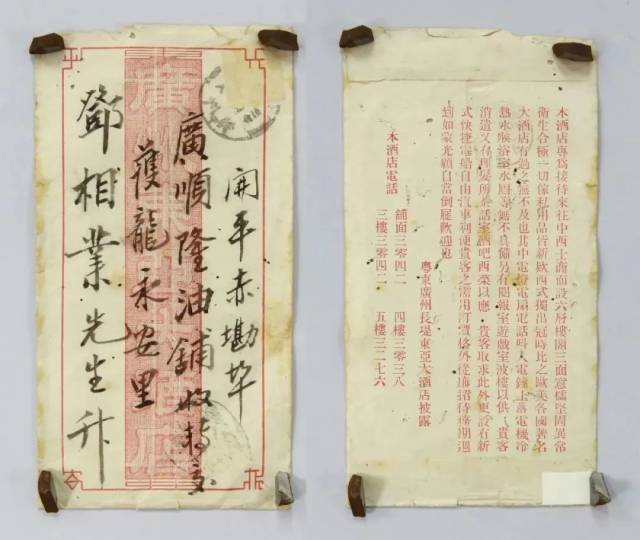 開平赤墈埠
廣順隆油舖收轉交
蓢龍永安里
鄧相業先生升
本酒店專爲接待來往中西士商而設六層樓閣三面意儒堅固異常
衛生合極一切傢私用品皆新欵西式獨出冠時比之歐美各國著名
大酒店有過之無不及也其中電燈電扇電話呌人電鐘上落電機冷
熱水喉浴室水厠等無不具備另有閱報室遊戲室波樓以供 貴客
消遣又有理髮所談話室酒吧西菜以應 貴客取求此外更設有新
式快捷電船自由汽車利便貴客之需用訂實格外從廉招待格期週
到如蒙光顧自當倒屣歡迎也
粵東廣州長堤東亞大酒店披露
本酒店電話
舖面三零四二 四樓三零三八
三樓三零四二 五樓三二七六